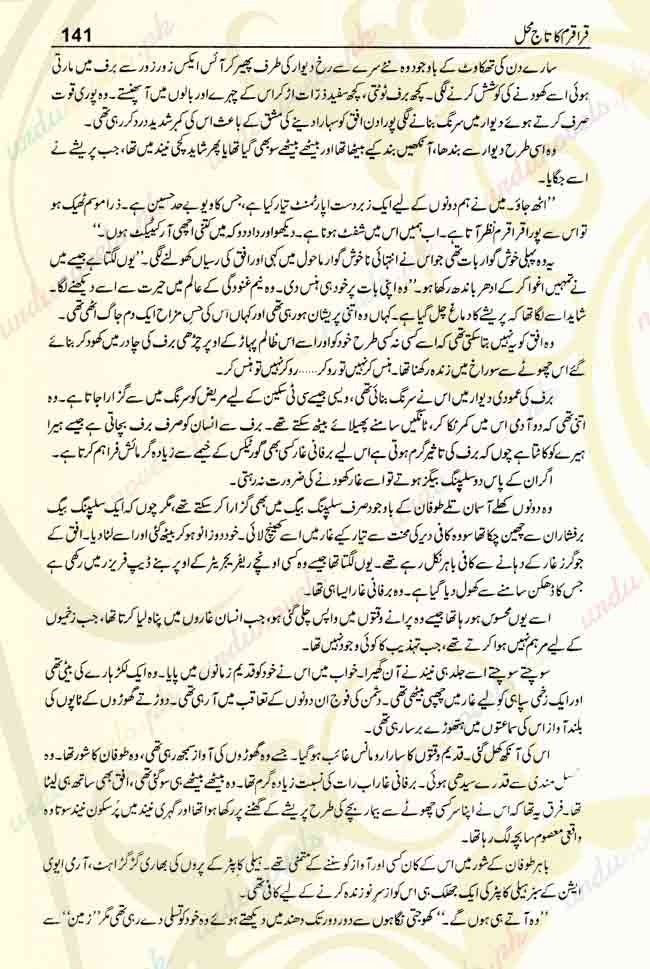 قراقرم کا تاج محل 141
سارے دن کی تھکاوٹ کے باوجود وہ نئے سرے سے رخ دیوار کی طرف پھیر کر آئس ایکس زور زور سے برف میں مارتی
ہوئی اسے کھودنے کی کوشش کرنے لگی۔ کچھ برف ٹوٹتی، کچھ سفید ذرات اڑ کر اس کے چہرے اور بالوں میں آ پھنستے۔ وہ پوری قوت
صرف کرتے ہوئے دیوار میں سرنگ بنانے لگی پورا دن افق کو سہارا دینے کی مشق کے باعث اس کی کمر شدید درد کر رہی تھی۔
وہ اسی طرح دیوار سے بندھا، آنکھیں بند کیے بیٹھا تھا اور بیٹھے بیٹھے سو بھی گیا تھا یا پھر شاید کچی نیند میں تھا، جب پریشے نے
اسے جگایا۔
"اٹھ جاؤ۔ میں نے ہم دونوں کے لیے ایک زبردست اپارٹمنٹ تیار کیا ہے، جس کا ویو بے حد حسین ہے۔ ذرا موسم ٹھیک ہو
تو اس سے پورا قراقرم نظر آتا ہے۔ اب ہمیں اس میں شفٹ ہونا ہے۔ دیکھو اور داد دو کہ میں کتنی اچھی آرکیٹیکٹ ہوں۔"
یہ وہ پہلی خوش گوار بات تھی جو اس نے انتہائی ناخوش گوار ماحول میں کہی اور افق کی رسیاں کھولنے لگی۔ "یوں لگتا ہے جیسے میں
نے تمہیں اغوا کر کے ادھر باندھ رکھا ہو۔" وہ اپنی بات پر خود ہی ہنس دی۔ وہ نیم غنودگی کے عالم میں حیرت سے اسے دیکھنے لگا۔
شاید اسے لگا تھا کہ پریشے کا دماغ چل گیا ہے۔ کہاں وہ اتنی پریشان ہو رہی تھی اور کہاں اس کی حس مزاح ایک دم جاگ اٹھی تھی۔
وہ افق کو یہ نہیں بتا سکتی تھی کہ اسے کسی نہ کسی طرح خود کو اور اسے اس ظالم پہاڑ کے اوپر چڑھی برف کی چادر میں کھود کر بنائے
گئے اس چھوٹے سے سوراخ میں زندہ رکھنا تھا۔ ہنس کر نہیں تو رو کر...... رو کر نہیں تو ہنس کر۔
برف کی عمودی دیوار میں اس نے سرنگ بنائی تھی، ویسی جیسے سی ٹی سکین کے لیے مریض کو سرنگ میں سے گزارا جاتا ہے۔ وہ
اتنی تھی کہ دو آدمی اس میں کمر ٹکا کر، ٹانگیں سامنے پھیلائے بیٹھ سکتے تھے۔ برف سے انسان کو صرف برف بچاتی ہے جیسے ہیرا
ہیرے کو کاٹتا ہے چوں کہ برف کی تاثیر گرم ہوتی ہے اس لیے برفانی غار کسی بھی گورٹیکس کے خیمے سے زیادہ گرمائش فراہم کرتا ہے۔
اگر ان کے پاس دو سلیپنگ بیگز ہوتے تو اسے غار کھودنے کی ضرورت نہ رہتی۔
وہ دونوں کھلے آسمان تلے طوفان کے باوجود صرف سلیپنگ بیگ میں بھی گزارا کر سکتے تھے، مگر چوں کہ ایک سلیپنگ بیگ
برفشار ان سے چھین چکا تھا سو وہ کافی دیر کی محنت سے تیار کیے غار میں اسے کھینچ لائی۔ خود دوزانو ہو کر بیٹھ گئی اور اسے لٹا دیا۔ افق کے
جوگرز غار کے دہانے سے کافی باہر نکل رہے تھے۔ یوں لگتا تھا جیسے وہ کسی اونچے ریفریجریٹر کے اوپر بنے ڈیپ فریزر میں رکھی ہے
جس کا ڈھکن سامنے سے کھول دیا گیا ہے۔ وہ برفانی غار ایسا ہی تھا۔
اسے یوں محسوس ہو رہا تھا جیسے وہ پرانے وقتوں میں واپس چلی گئی ہو، جب انسان غاروں میں پناہ لیا کرتا تھا، جب زخمیوں
کے لیے مرہم نہیں ہوا کرتے تھے، جب تہذیب کا کوئی وجود نہیں تھا۔
سوچتے سوچتے اسے جلد ہی نیند نے آن گھیرا۔ خواب میں اس نے خود کو قدیم زمانوں میں پایا۔ وہ ایک لکڑہارے کی بیٹی تھی
اور ایک زخمی سپاہی کو لیے غار میں چھپی بیٹھی تھی۔ دشمن کی فوج ان دونوں کے تعاقب میں آ رہی تھی۔ دوڑتے گھوڑوں کے ٹاپوں کی
بلند آواز اس کی سماعتوں میں ہتھوڑے برسا رہی تھی۔
اس کی آنکھ کھل گئی۔ قدیم وقتوں کا سارا رومانس غائب ہو گیا۔ جسے وہ گھوڑوں کی آواز سمجھ رہی تھی، وہ طوفان کا شور تھا۔ وہ
کسل مندی سے قدرے سیدھی ہوئی۔ برفانی غار اب رات کی نسبت زیادہ گرم تھا۔ وہ بیٹھے بیٹھے ہی سو گئی تھی، افق بھی ساتھ ہی لیٹا
تھا۔ فرق یہ تھا کہ اس نے اپنا سر کسی چھوٹے سے بیمار بچے کی طرح پریشے کے گھٹنے پر رکھا ہوا تھا اور گہری نیند میں پُرسکون نیند سوتا وہ
واقعی معصوم سا بچہ لگ رہا تھا۔
باہر طوفان کے شور میں اس کے کان کسی اور آواز کو سننے کے متمنی تھے۔ ہیلی کاپٹر کے پروں کی بھاری گڑگڑاہٹ، آرمی ایوی
ایشن کے سبز ہیلی کاپٹر کی ایک جھلک ہی اس کو از سر نو زندہ کرنے کے لیے کافی تھی۔
"وہ آتے ہی ہوں گے۔" کھوجتی نگاہوں سے دور دور تک دھند میں دیکھتے ہوئے وہ خود کو تسلی دے رہی تھی مگر "زمین" سے